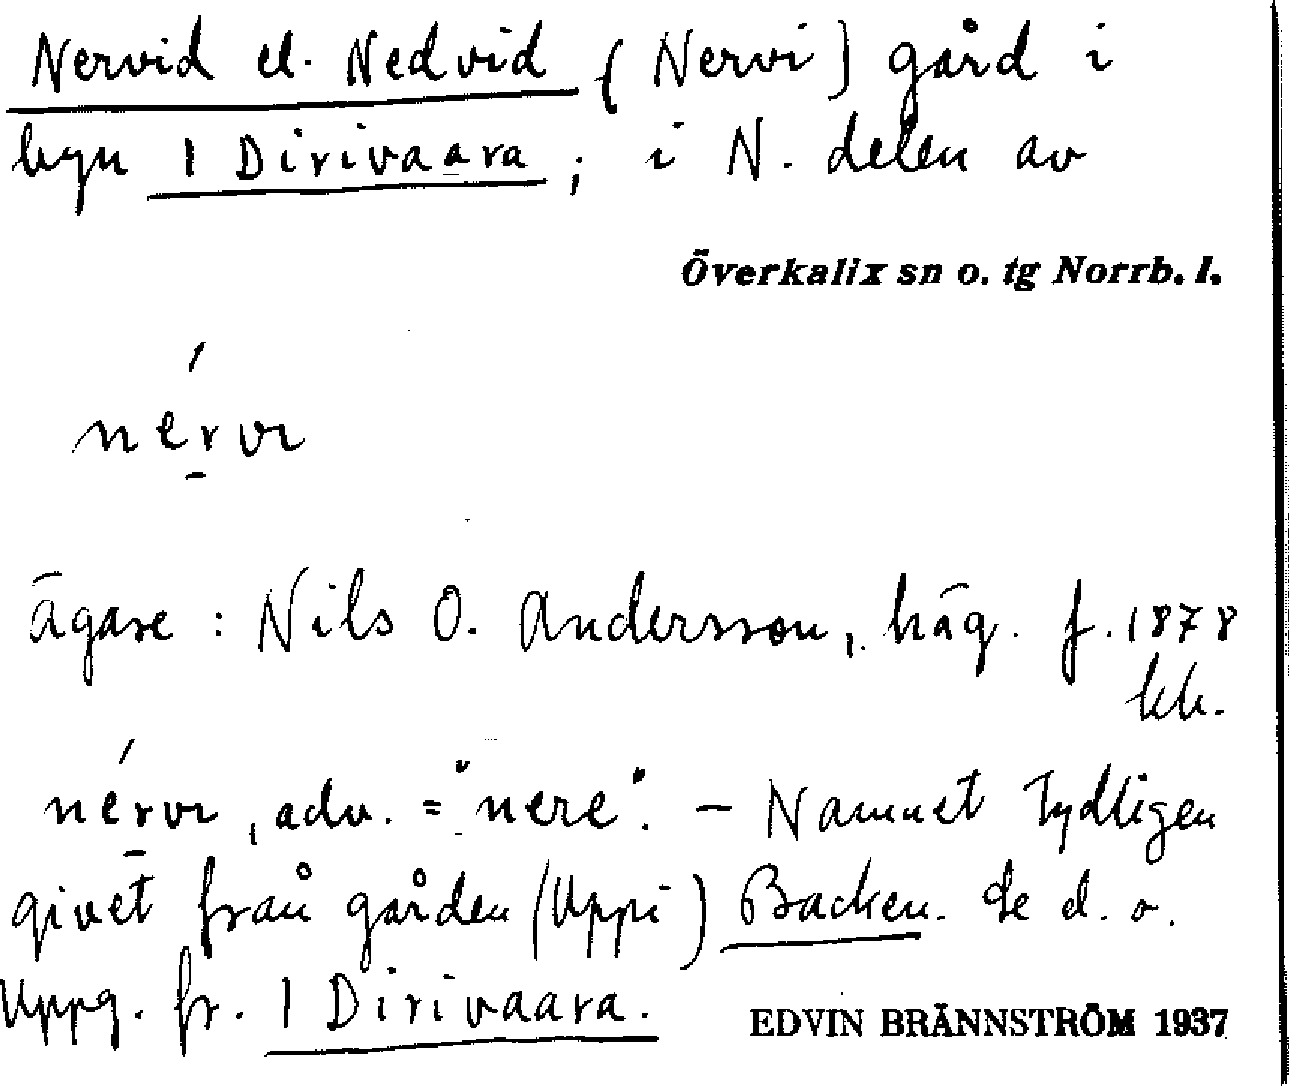 Nervid el. Nedvid (Nervi) gård i
byn 1 Dirivaara; i N. delen av
Överkalix sn o. tg Norrb. l.
nérvı
ägare: Nils O. Andersson, häg. f. 1878
kh.
nérvı, adv. = "nere". – Namnet tydligen
givet från gården (Uppi) Backen. Se d. o.
Uppg. fr. 1 Dirivaara.
EDVIN BRÄNNSTRÖM 1937